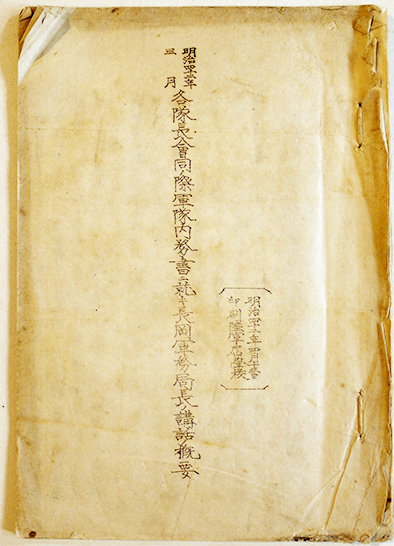 明治四十二年
三月
各隊長會同ノ際軍隊内務書ニ就キ長岡軍務局長ノ講話概要
明治四十二年四月
印刷陸軍戸山學校